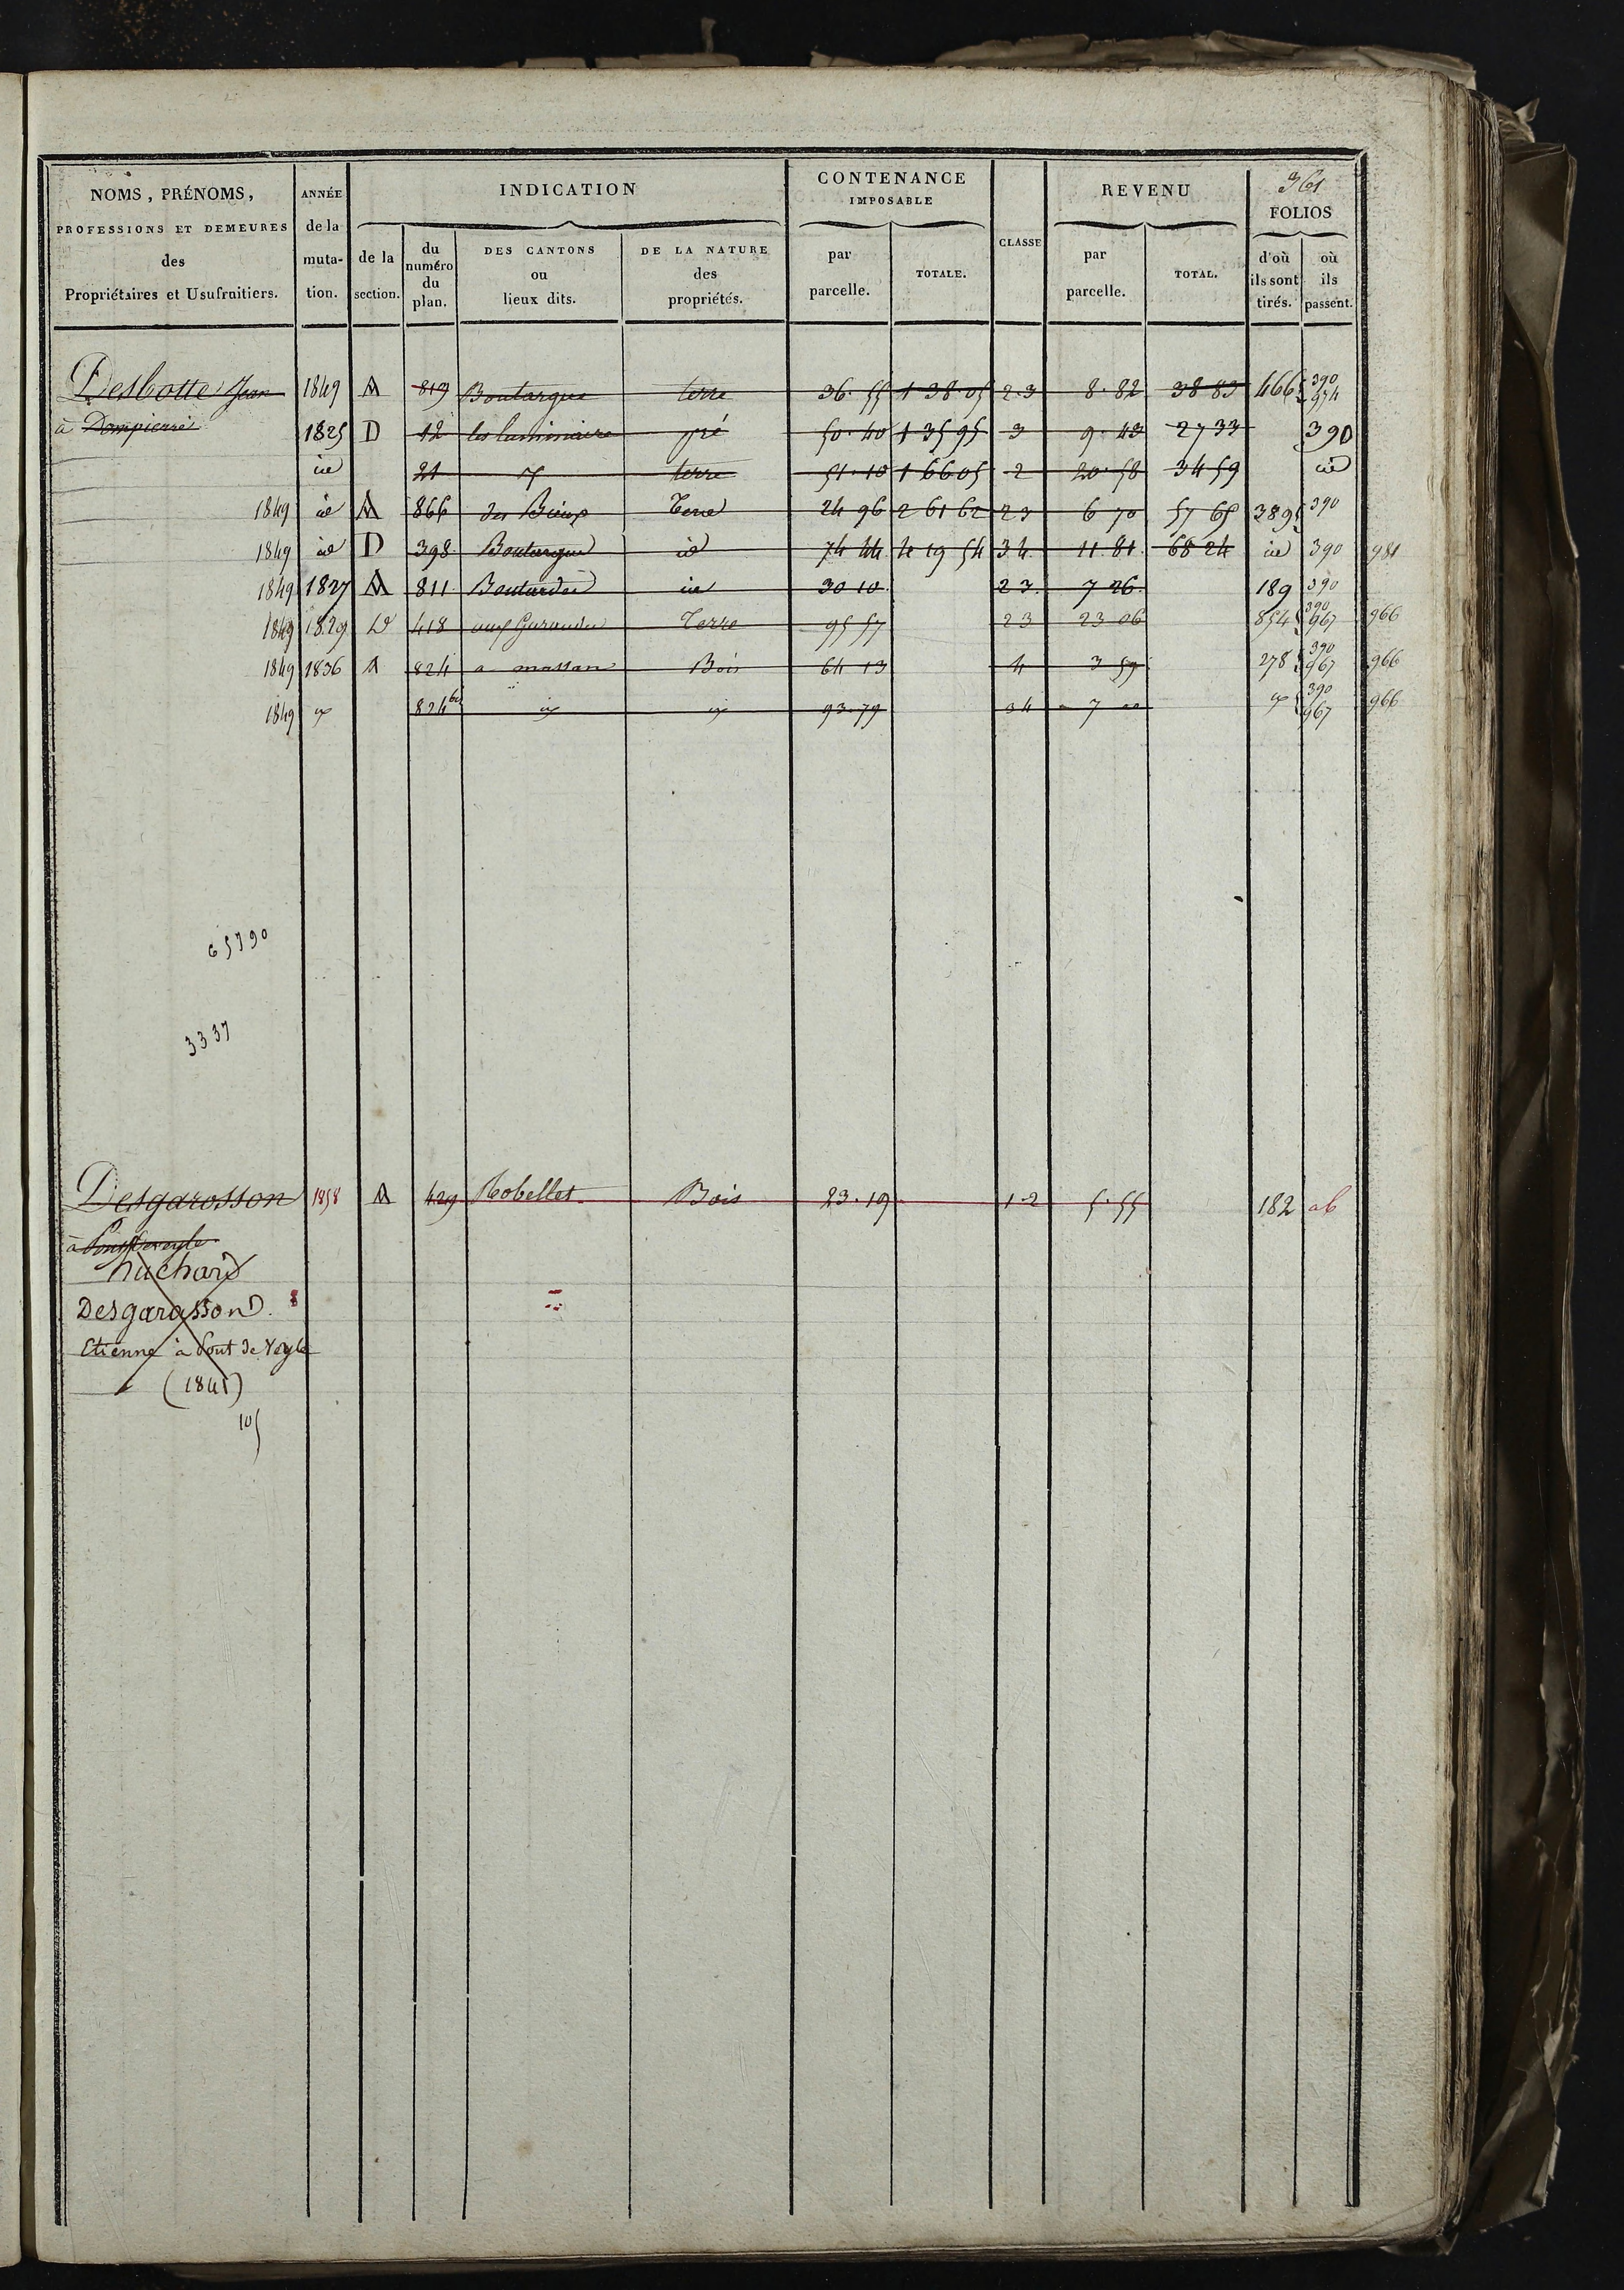 361
NOMS, PRÉNOMS, PROFESSIONS ET DEMEURES des Propriétaires et Usufruitiers.
ANNÉE de la muta- tion.
INDICATION
de la section.
du numéro du plan.
DES CANTONS ou lieux dits.
DE LA NATURE des propriétés.
CONTENANCE IMPOSABLE
par parcelle.
TOTALE.
CLASSE
REVENU
par parcelle.
TOTAL.
FOLIOS
d'où ils sont tirés.
où ils passent.
Desbotte Jean 1849 A 819 Boutarque terre 36.55 1 38.05 2.3 8.82 38 83 466 390
à Dompierre 1825 D 12 les luminiaire pré 50.40 1 35 95 3 9.43 27 33 390
id 21 terre 51.10 1 66 05 2 20.58 34 59 id
1849 id A 866 des Bieux Terre 24 96 2 61 62 2 3 6 70 57 65 389 390
1849 id D 398 Boutarque id 74 44 4 19 54 3 4 11.81 68 24 id 390 981
1849 1827 A 811 id 30 10 2 3 7 26 189 390
1849 1829 D 418 Terre 95 57 2 3 23 06 854 390 967 966
1849 1836 A 824 a massan Bois 64 13 4 3 59 278 390 967 966
1849 824 93.79 3 4 7 390 967 966
65790
3337
Desgarosson 1858 A 429 Robellet Bois 23.19 1.2 5.55 182
à
huchard
Desgarasson
Etienne à Pont de Veyle
(1841)